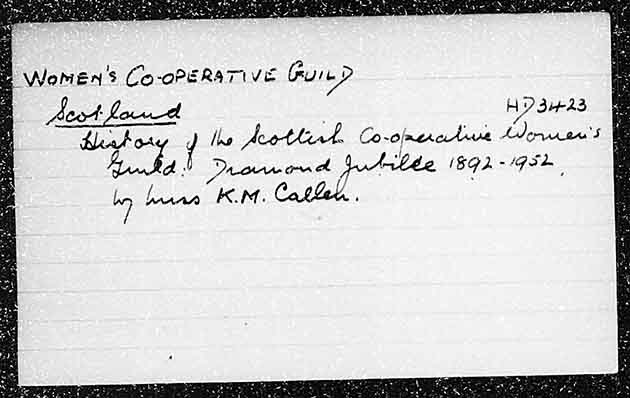 WOMEN'S CO-OPERATIVE GUILD
Scotland HD3423
History of the Scottish Co-operative Women's
Guild. Diamond Jubilee 1892-1952
by Miss K.M. Callen.